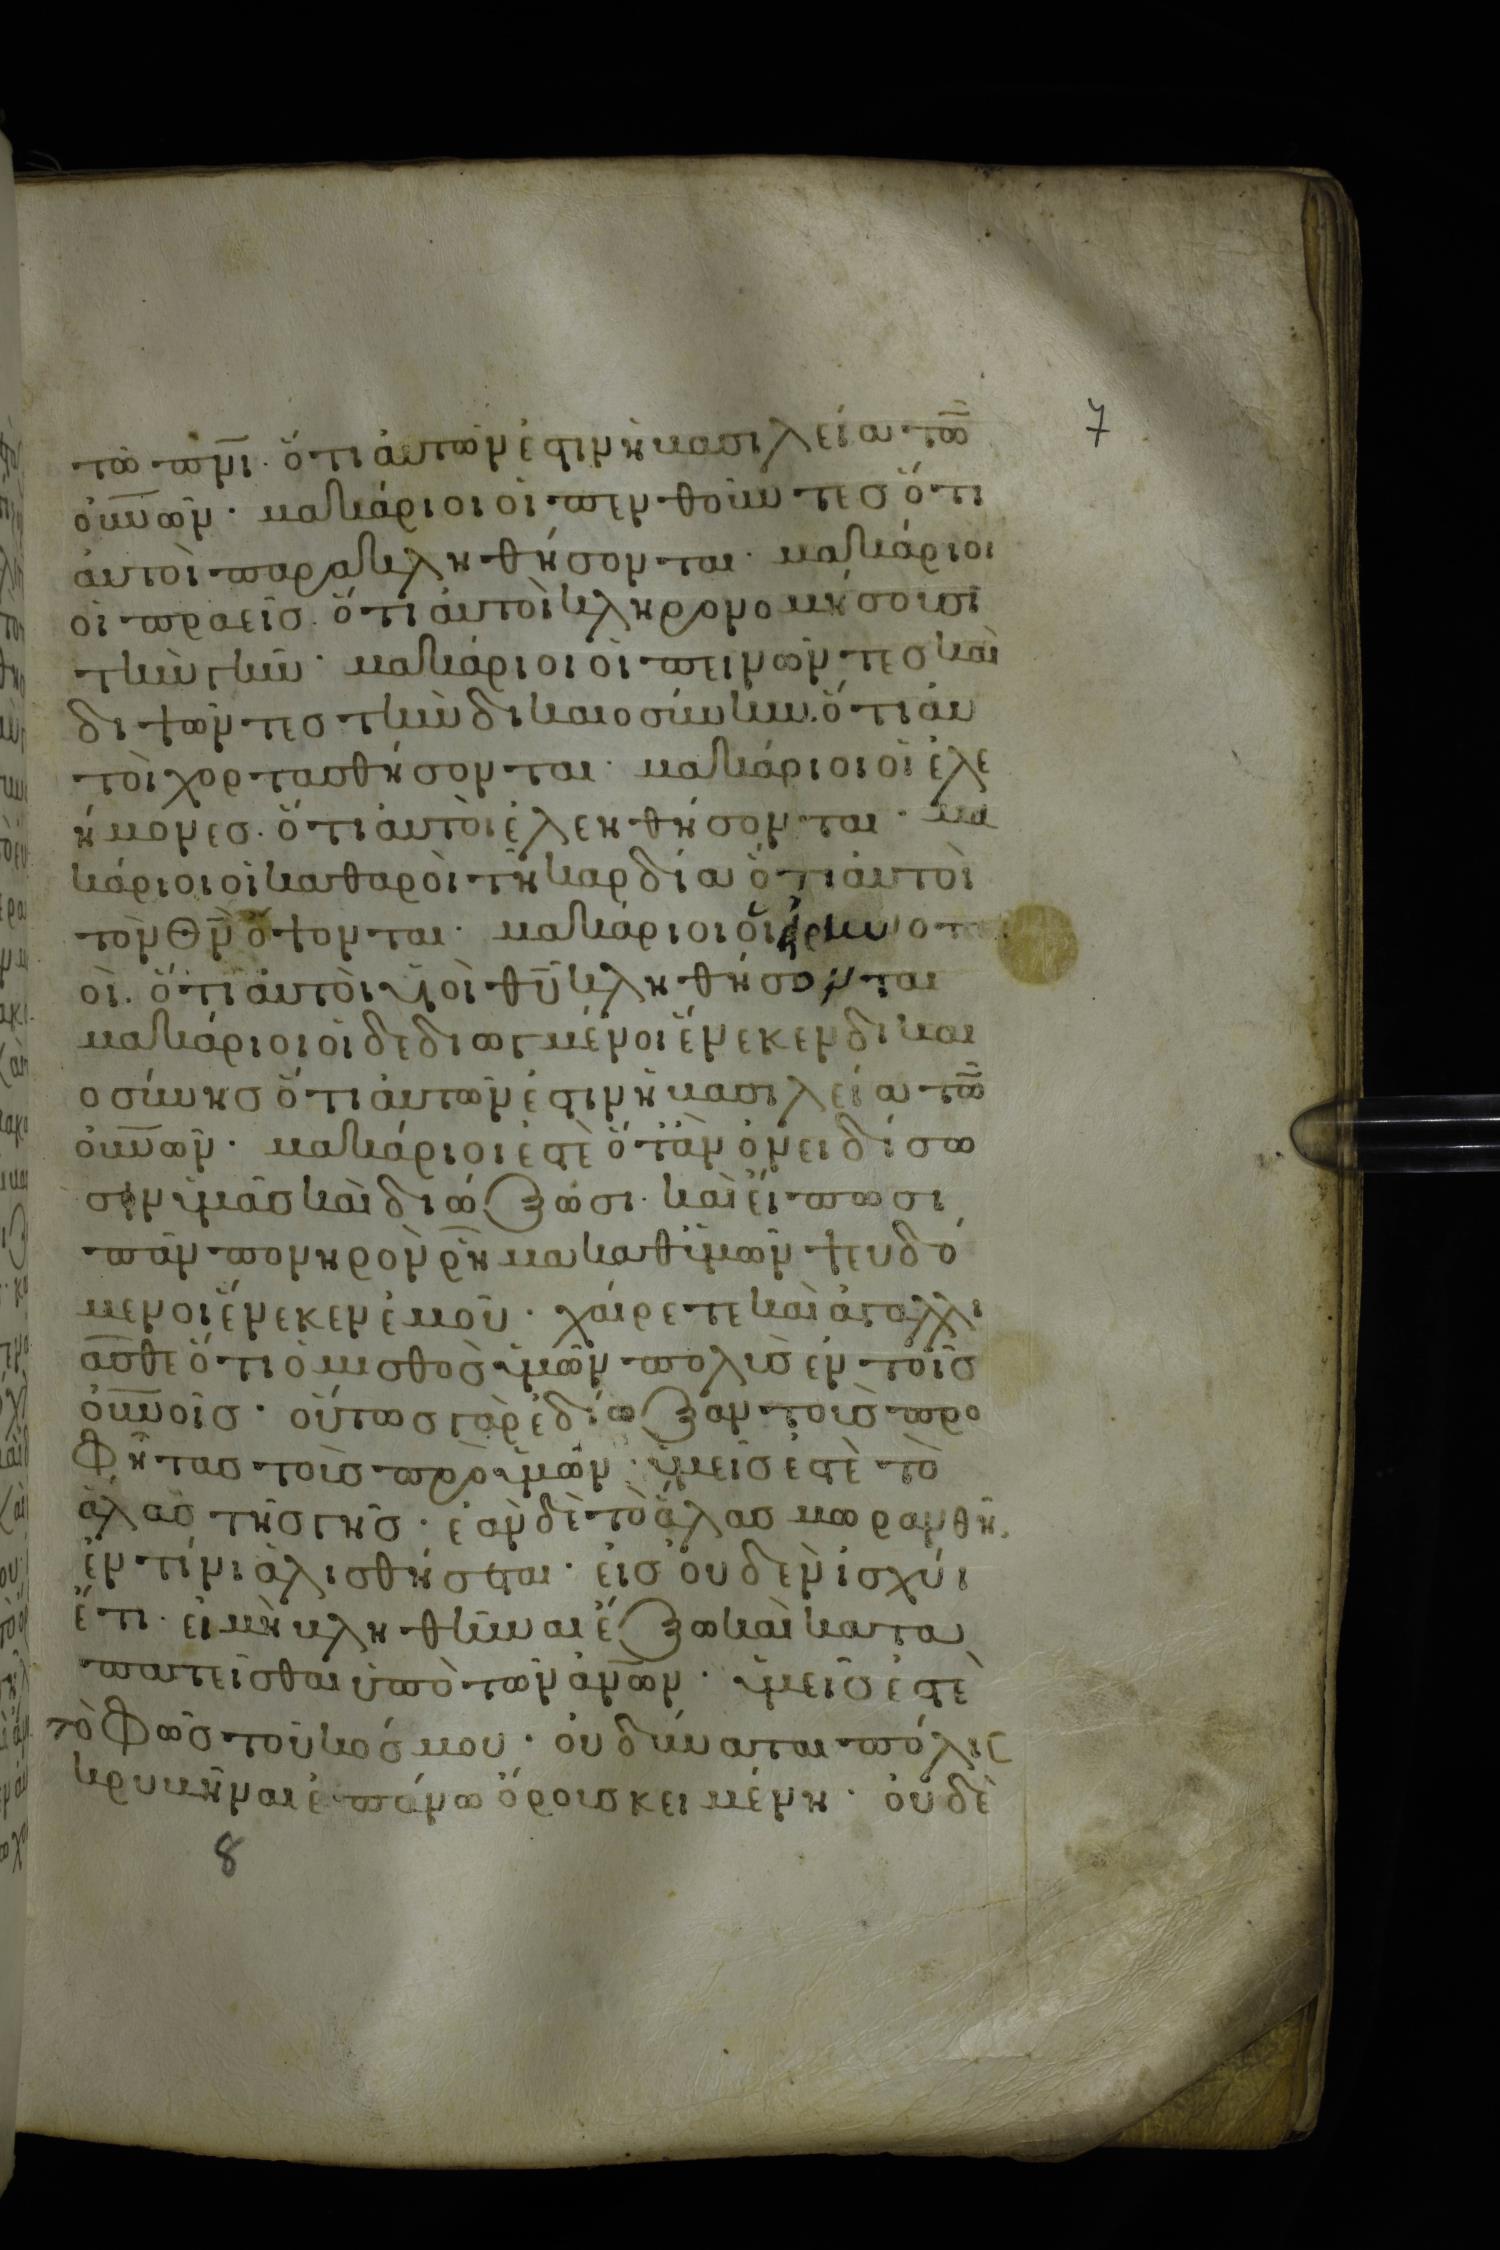 7
τῶ πν̅ι· ὅτι ἀυτῶν ἐστιν ἡ βασιλεία τῶ̅
ὀυν̅ῶν· μακάριοι οἱ πενθοῦντες ὅτι
ἀυτοὶ παρακληθήσονται· μακάριοι
οἱ πραεῖς· ὅτι ἀυτοὶ κληρονομήσουσι
τὴν γῆν· μακάριοι οἱ πεινῶντες καὶ
διψῶντες τὴν δικαιοσύνην· ὅτι ἀυ
τοὶ χορτασθήσονται· μακάριοι οἱ ἐλε
ήμονες· ὅτι ἀυτοὶ ἐλεηθήσονται· μα
κάριοι οἱ καθαροὶ τῆ καρδία ὅτι ἀυτοὶ
τὸν Θν̅ ὄψονται· μακάριοι οἱ ἐιρηνοπ
οὶ· ὅτι ἀυτοὶ υἱοὶ θυ̅ κληθήσονται
μακάριοι οἱ δεδιωγμένοι ἕνεκεν δικαι
οσύνης ὅτι ἀυτῶν ἐστιν ἡ βασιλεία τῶ̅
ὀυν̅ῶν· μακάριοι ἐστὲ ὅταν ὀνειδίσω
σιν ὑμᾶς καὶ διώξωσι· καὶ ἔιπωσι
πᾶν πονηρὸν ῥῆμα καθ ὑμῶν ψευδό
μενοι ἕνεκεν ἐμοῦ· χάιρετε καὶ ἀγαλλι
ᾶσθε ὅτι ὁ μισθὸς ὑμῶν πολὺς ἐν τοῖς
ὀυν̅οῖς· οὕτως γὰρ ἐδίωξαν τοὺς προ
φήτας τοὺς πρὸ ὑμῶν· ὑμεῖς ἐστὲ τὸ
ἅλας τῆς γῆς· ἐὰν δὲ τὸ ἅλας μωρανθῆ,
ἐν τίνι ἁλισθήσεται· ἐις ὀυδὲν ἰσχύι
ἔτι· ἐι μὴ βληθῆναι ἔξω καὶ κατα
πατεῖσθαι ὑπὸ τῶν ἀν̅ων· ὑμεῖς ἐστὲ
τὸ φῶς τοῦ κόσμου· ὀυ δύναται πόλις
κρυβῆναι ἐπάνω ὄρους κειμένη· ὀυδὲ
8